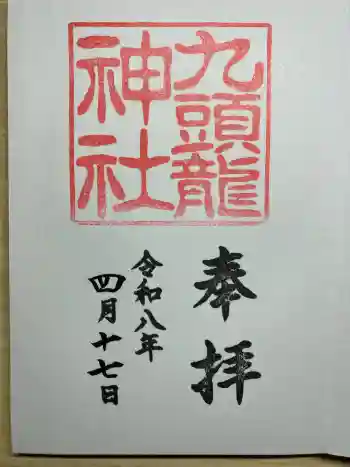 九頭龍
神社
奉拝
令和八年
四月十七日